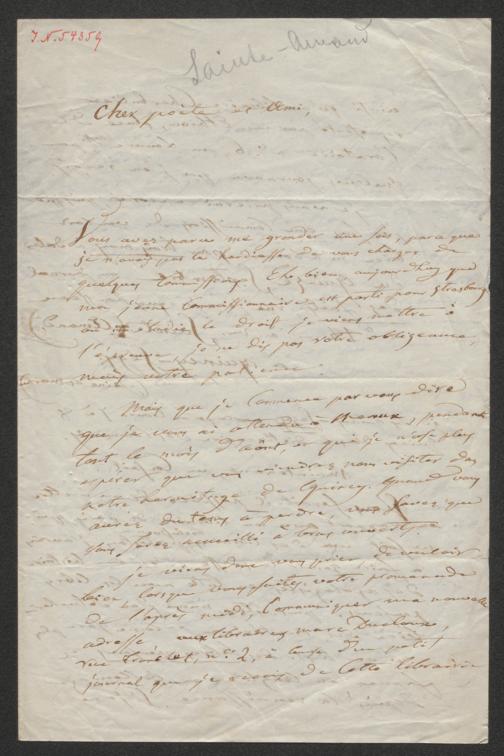 I.N. 54359
Sainte-
Cher poète et ami,
Vous avez paru me gronder une fois, parce que
je n'avais pas la hardiesse de vous charger de
quelques commissions. Eh bien aujourd'hui que
mon jeune commissionnaire est parti pour Strasbourg
où le droit, je viens mettre à
l'épreuve, je ne dis pas votre obligeance,
mais votre patience.
Mais que je commence par vous dire
que je vous ai attendu à Meaux, pendant
tout le mois d'août, et que je n'ose plus
espérer que vous viendrez nous visiter dans
notre hermitage de Quincy. Quand vous
aurez du temps à perdre, vous savez que
vous serez accueilli à bras ouverts.
Je viens donc vous prier de vouloir
bien lorsque vous faites votre promenade
de l'après midi, communiquer ma nouvelle
adresse aux libraires Marc Ducloux,
rue Tronchet, n.° 2, à cause d'un petit
journal que je reçois de cette librairie